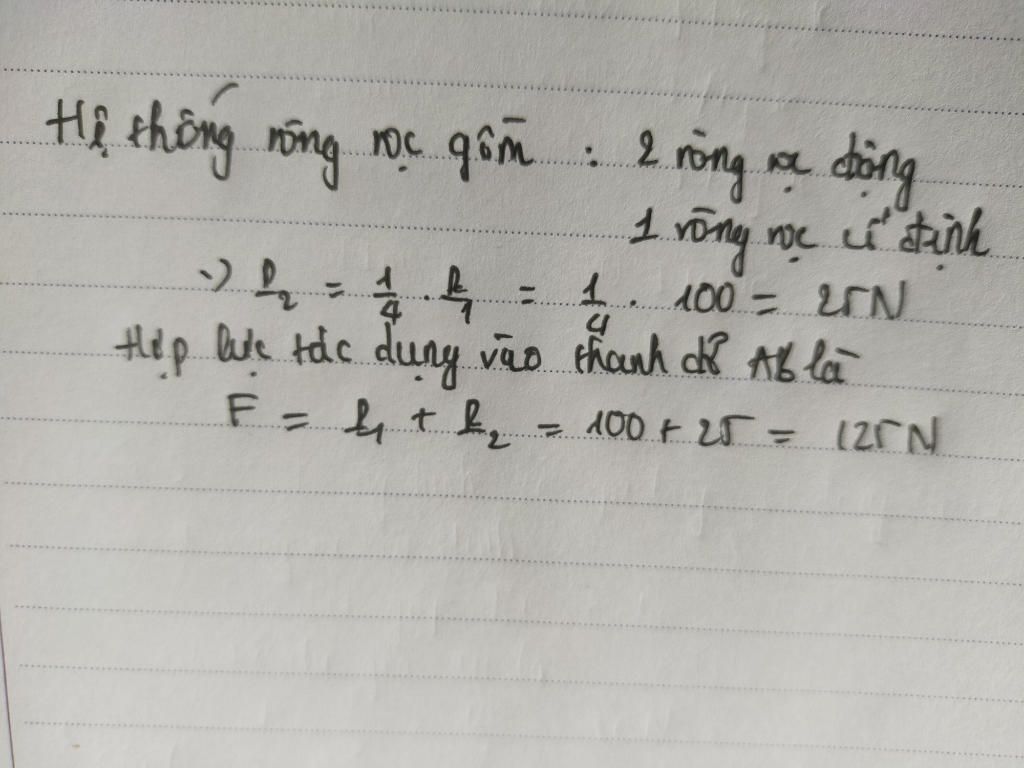 Hệ thống ròng rọc gồm : 2 ròng rọc động
1 ròng rọc cố định
=> P₂ = 1/4 . P₁ = 1/4 . 100 = 25N
Hợp lực tác dụng vào thanh đỡ AB là
F = P₁ + P₂ = 100 + 25 = 125N